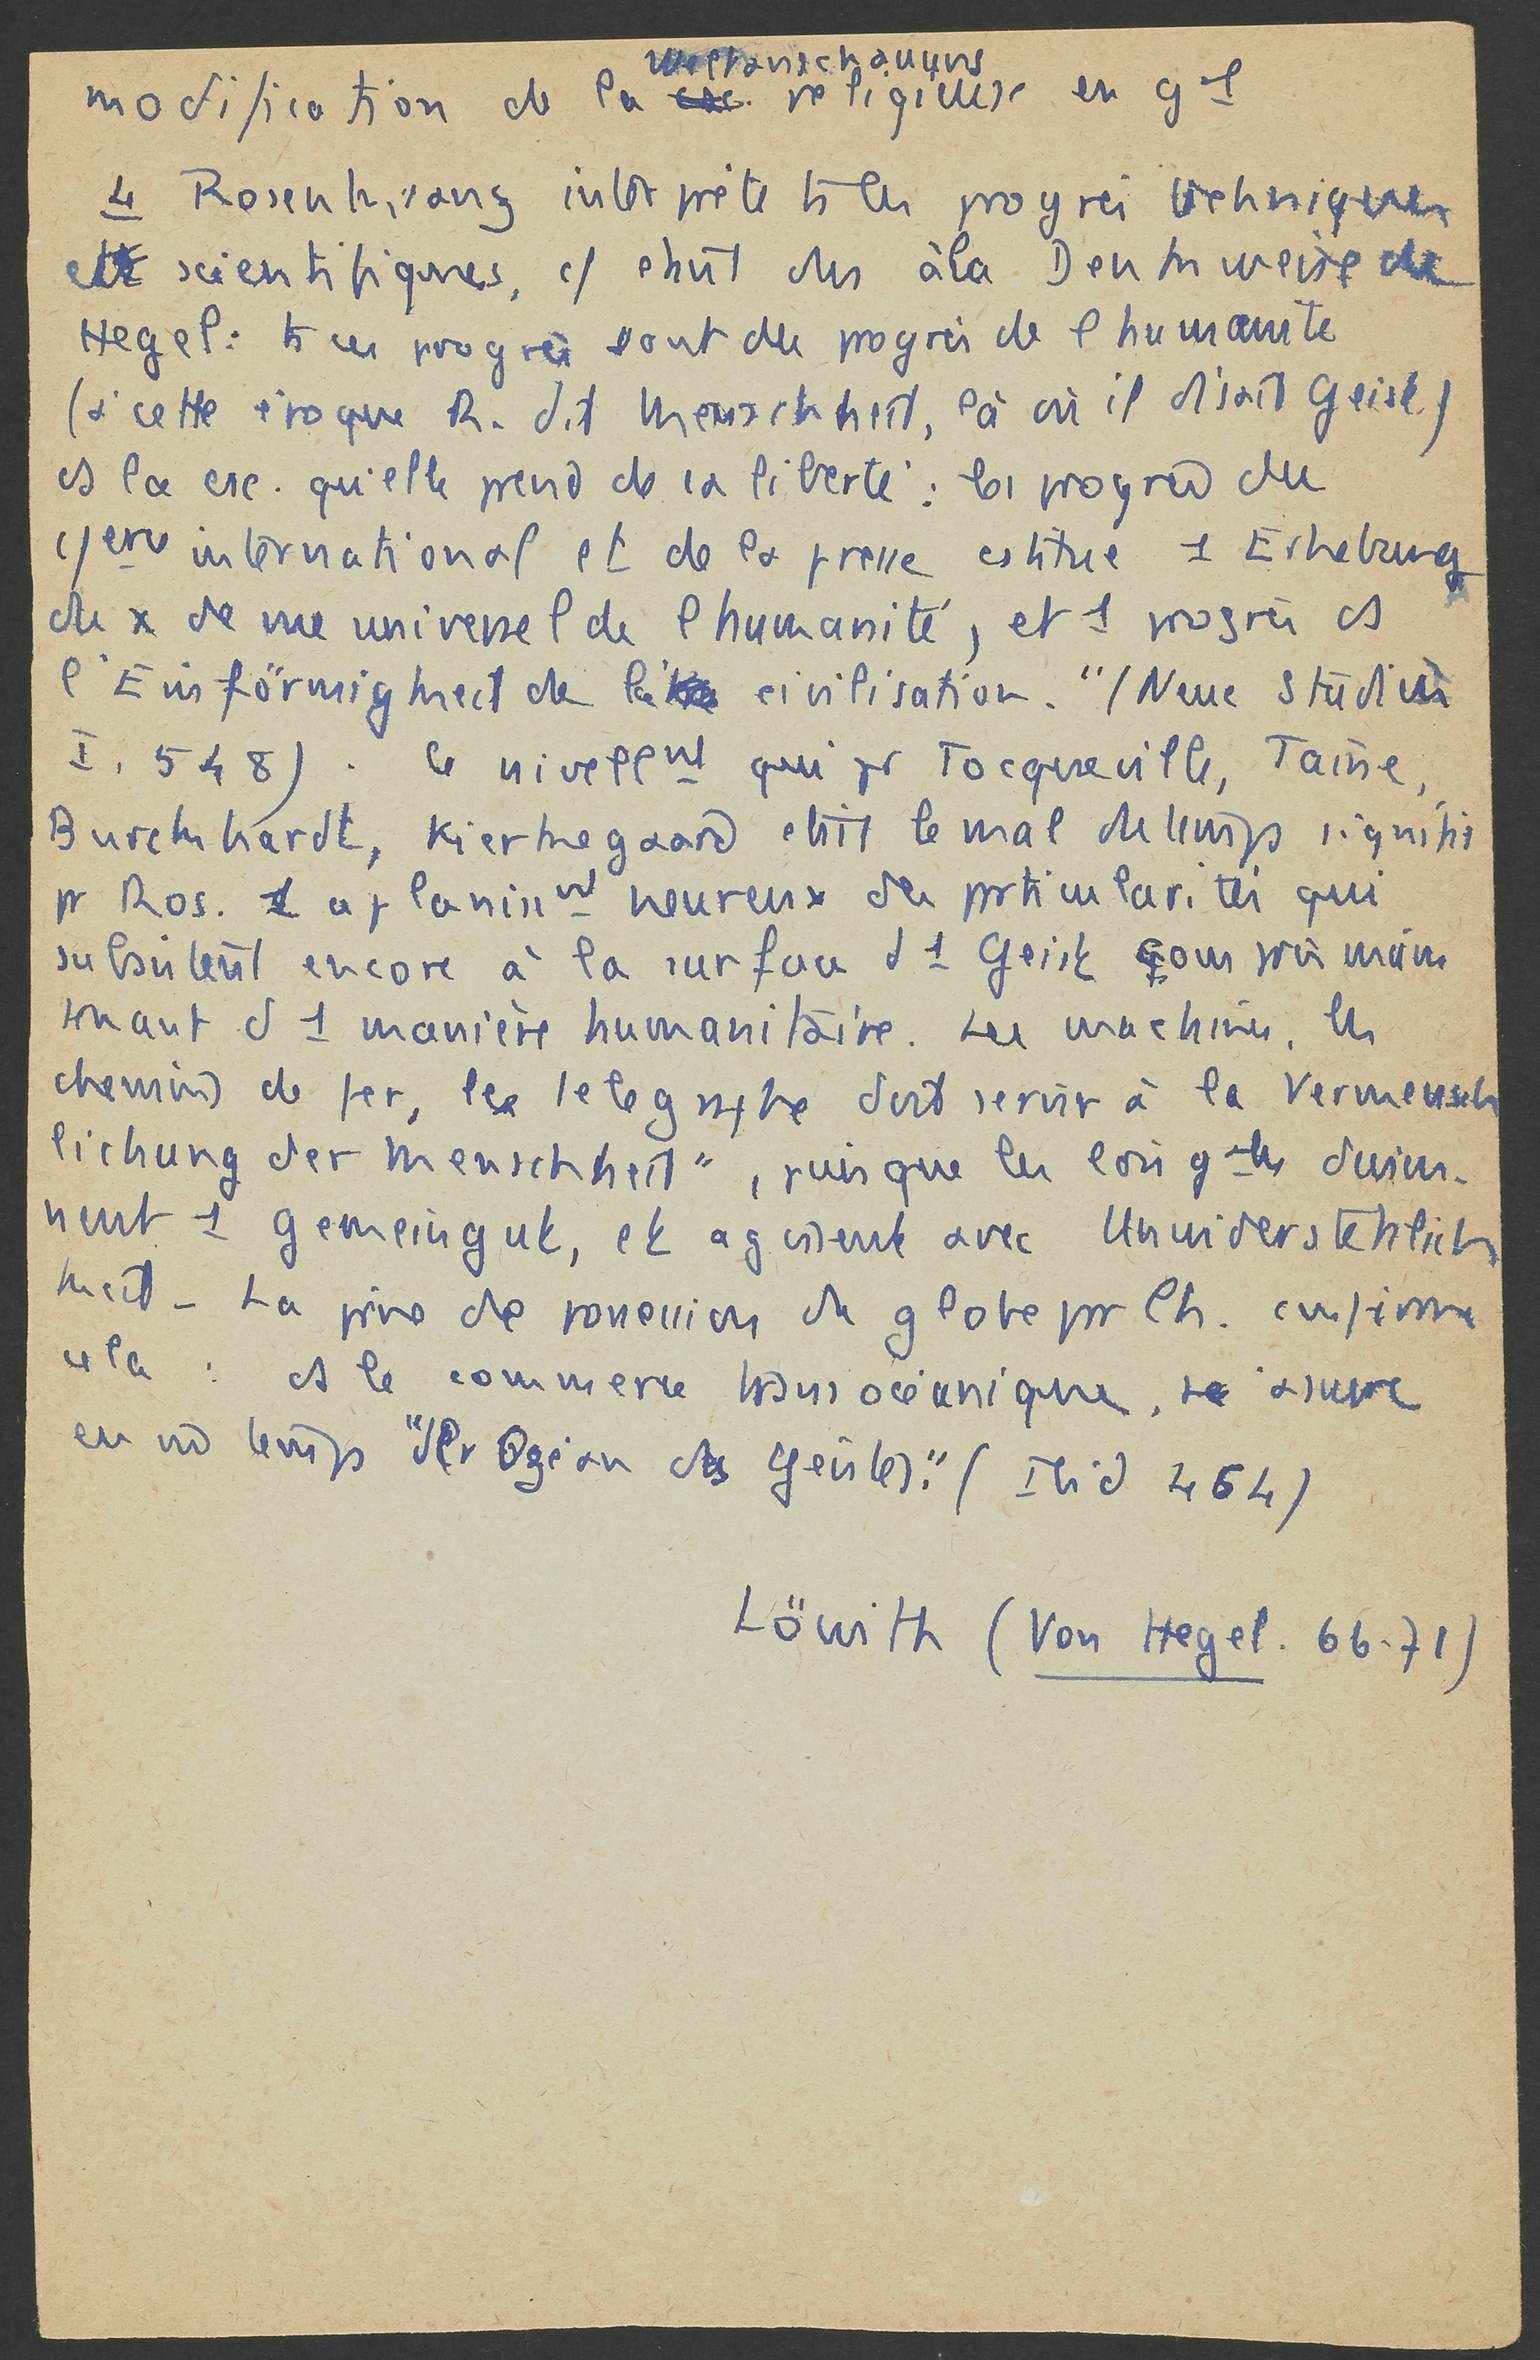 Weltanschauung
modification de la religieuse en g^l
4 Rosenkranz interprète ts les progrès techniques
et scientifiques, c/ étant dus à la Denkweise de
Hegel : ts ces progrès sont des progrès de l'humanité
(à cette époque R. dit Menschheit, là où il disait Geist)
ds la csc. qu'elle prend de sa liberté : les progrès du
c/erce international et de la presse cstitue 1 Erhebung
du x de vue universel de l'humanité, et 1 progrès ds
l'Einförmigkeit de la civilisation." (Neue Studien
I, 548). Le nivellnt qui pr Tocqueville, Taine,
Burckhardt, Kierkegaard était le mal du temps signifie
pr Ros. 1 aplanissnt heureux des particularités qui
subsistent encore à la surface d'1 Geist compris main
tenant d'1 manière humanitaire. Les machines, les
chemins de fer, les telegraphe doivt servir à la Vermensch
lichung der Menschheit", puisque les lois g^ales devien-
nent 1 Gemeingut, et agissent avec Unwiderstehlich
keit - La prise de possession du globe pr l'h. confirme
cela : ds le commerce transocéanique, se assure
en m temps "der Ozean des Geistes." (Ibid 464)
Löwith (Von Hegel. 66-71)